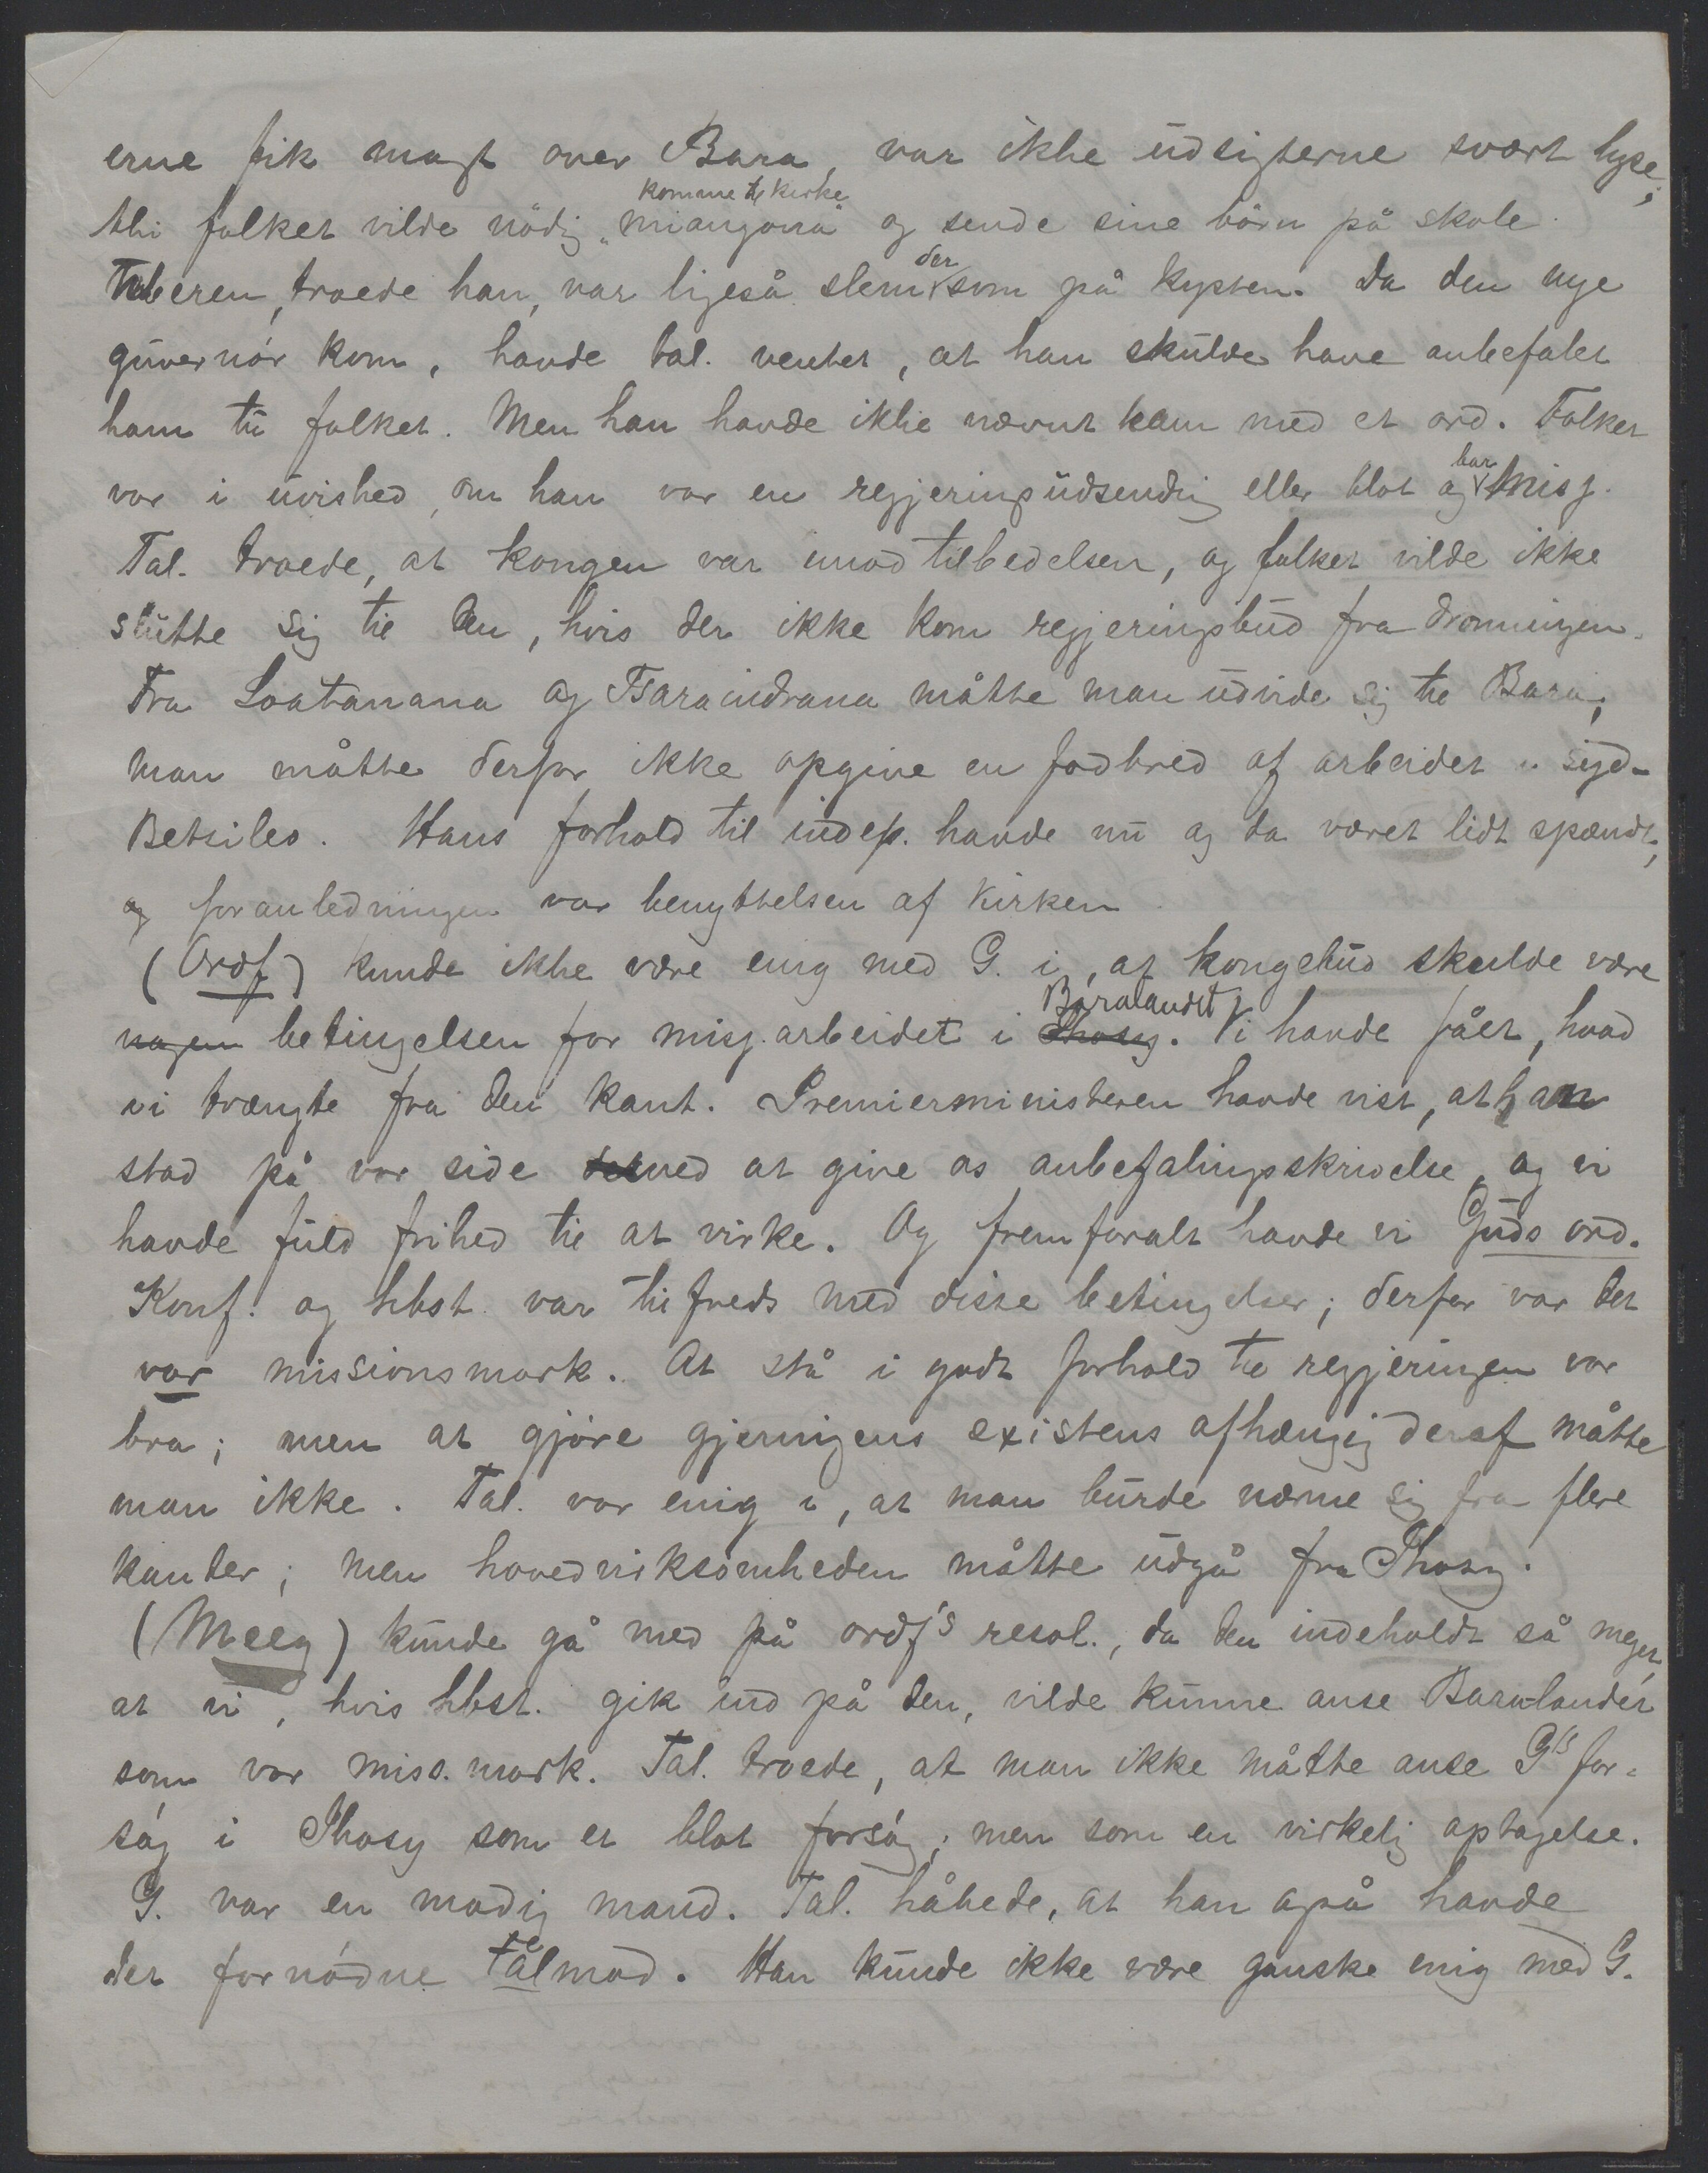 erne fik magt over Bara, var ikke udsigterne svært lyse;
komme til kirke
thi folket vilde nödig "miangona" og sende sine börn på skole.
der
Feberen, troede han, var ligeså slem som på kysten. Da den nye
guvernör kom, havde tal. ventet, at han skulde have anbefalet
ham til folket. Men han havde ikke nævnt ham med et ord. Folket
bar
var i uvished, om han var en regjeringsudsending eller blot og misj.
Tal. troede, at kongen var imod tilbedelsen, og folket vilde ikke
slutte sig til den, hvis der ikke kom regjeringsbud fra dronningen.
Fra Soatanana og Tsaraindrana måtte man udvide sig til Bara;
man måtte derfor ikke opgive en fodbred af arbeidet i syd-
Betsileo. Hans forhold til indep. havde nu og da været lidt spændt,
og foranledningen var benyttelsen af kirken.
(Ordf) kunde ikke være enig med G. i, at kongebud skulde være
Baralandet
nogen betingelsen for misj. arbeidet i Ihosy. Vi havde fået, hvad
vi trængte fra den kant. Premierministeren havde vist, at han
stod på vor side ved at give os anbefalingsskrivelse, og vi
havde fuld frihed til at virke. Og fremforalt havde vi Guds ord.
Konf. og hbst. var tilfreds med disse betingelser; derfor var det
vor missionsmark. At stå i godt forhold til regjeringen var
bra; men at gjöre gjerningens existens afhængig deraf måtte
man ikke. Tal. var enig i, at man burde nærme sig fra flere
kanter; men hovedvirksomheden måtte udgå fra Ihosy.
(Meeg) kunde gå med på ordf's resol., da den indeholdt så meget,
at vi, hvis hbst. gik ind på den, vilde kunne anse Bara-landet
som vor miss. mark. Tal. troede, at man ikke måtte anse G's for-
sög i Ihosy som et blot forsög; men som en virkelig optagelse.
G. var en modig mand. Tal. håbede, at han også havde
det fornödne tålmod. Han kunde ikke være ganske enig med G.